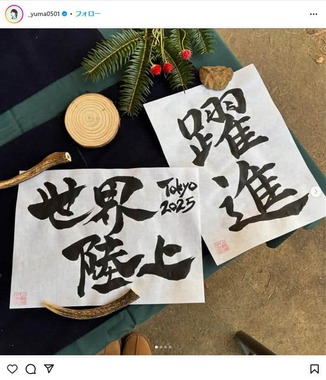 _yuma0501 • フォロー
躍進
世界
陸上
Tokyo
2025